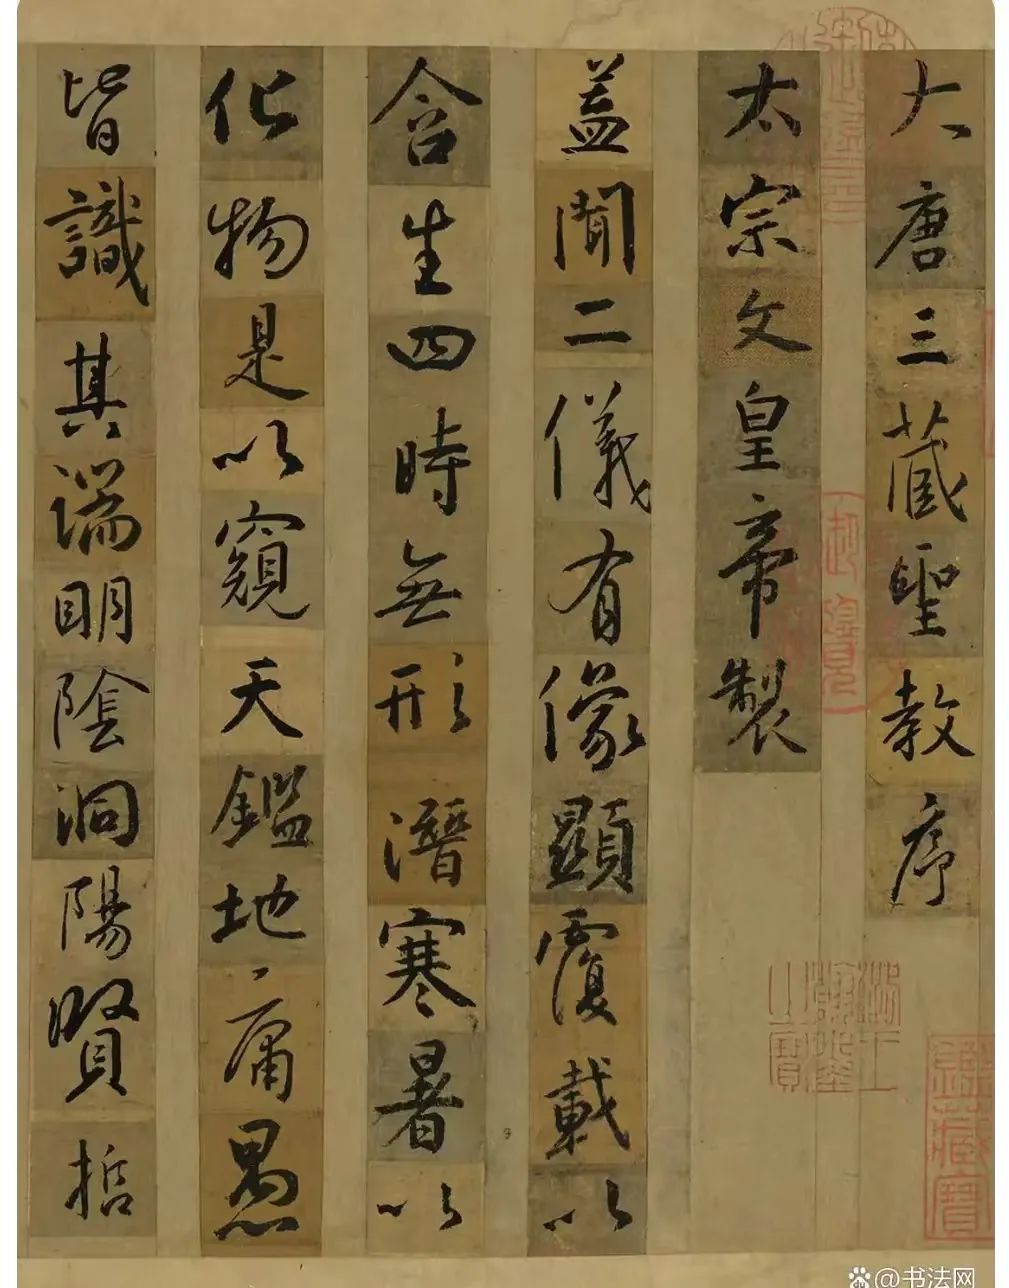 大唐三藏聖教序
太宗文皇帝製
蓋聞二儀有像顯覆載以
含生四時無形潛寒暑以
化物是以窺天鑑地庸愚
皆識其端明陰洞陽賢哲
鑑藏寶
@书法网